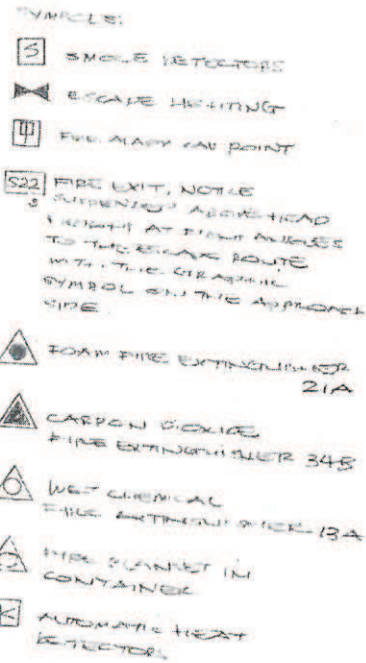 SYMBOLS:
S SMOKE DETECTORS
ESCAPE LIGHTING
FIRE ALARM CALL POINT
S22 FIRE EXIT, NOTICE
S SUSPENDED ABOVE HEAD
HEIGHT AT RIGHT ANGLES
TO THE ESCAPE ROUTE
WITH THE GRAPHIC
SYMBOL ON THE APPROACH
SIDE
FOAM FIRE EXTINGUISHER
21A
CARBON DIOXIDE
FIRE EXTINGUISHER 34B
WET CHEMICAL
FIRE EXTINGUISHER 13A
FIRE BLANKET IN
CONTAINER
AUTOMATIC HEAT
DETECTORS